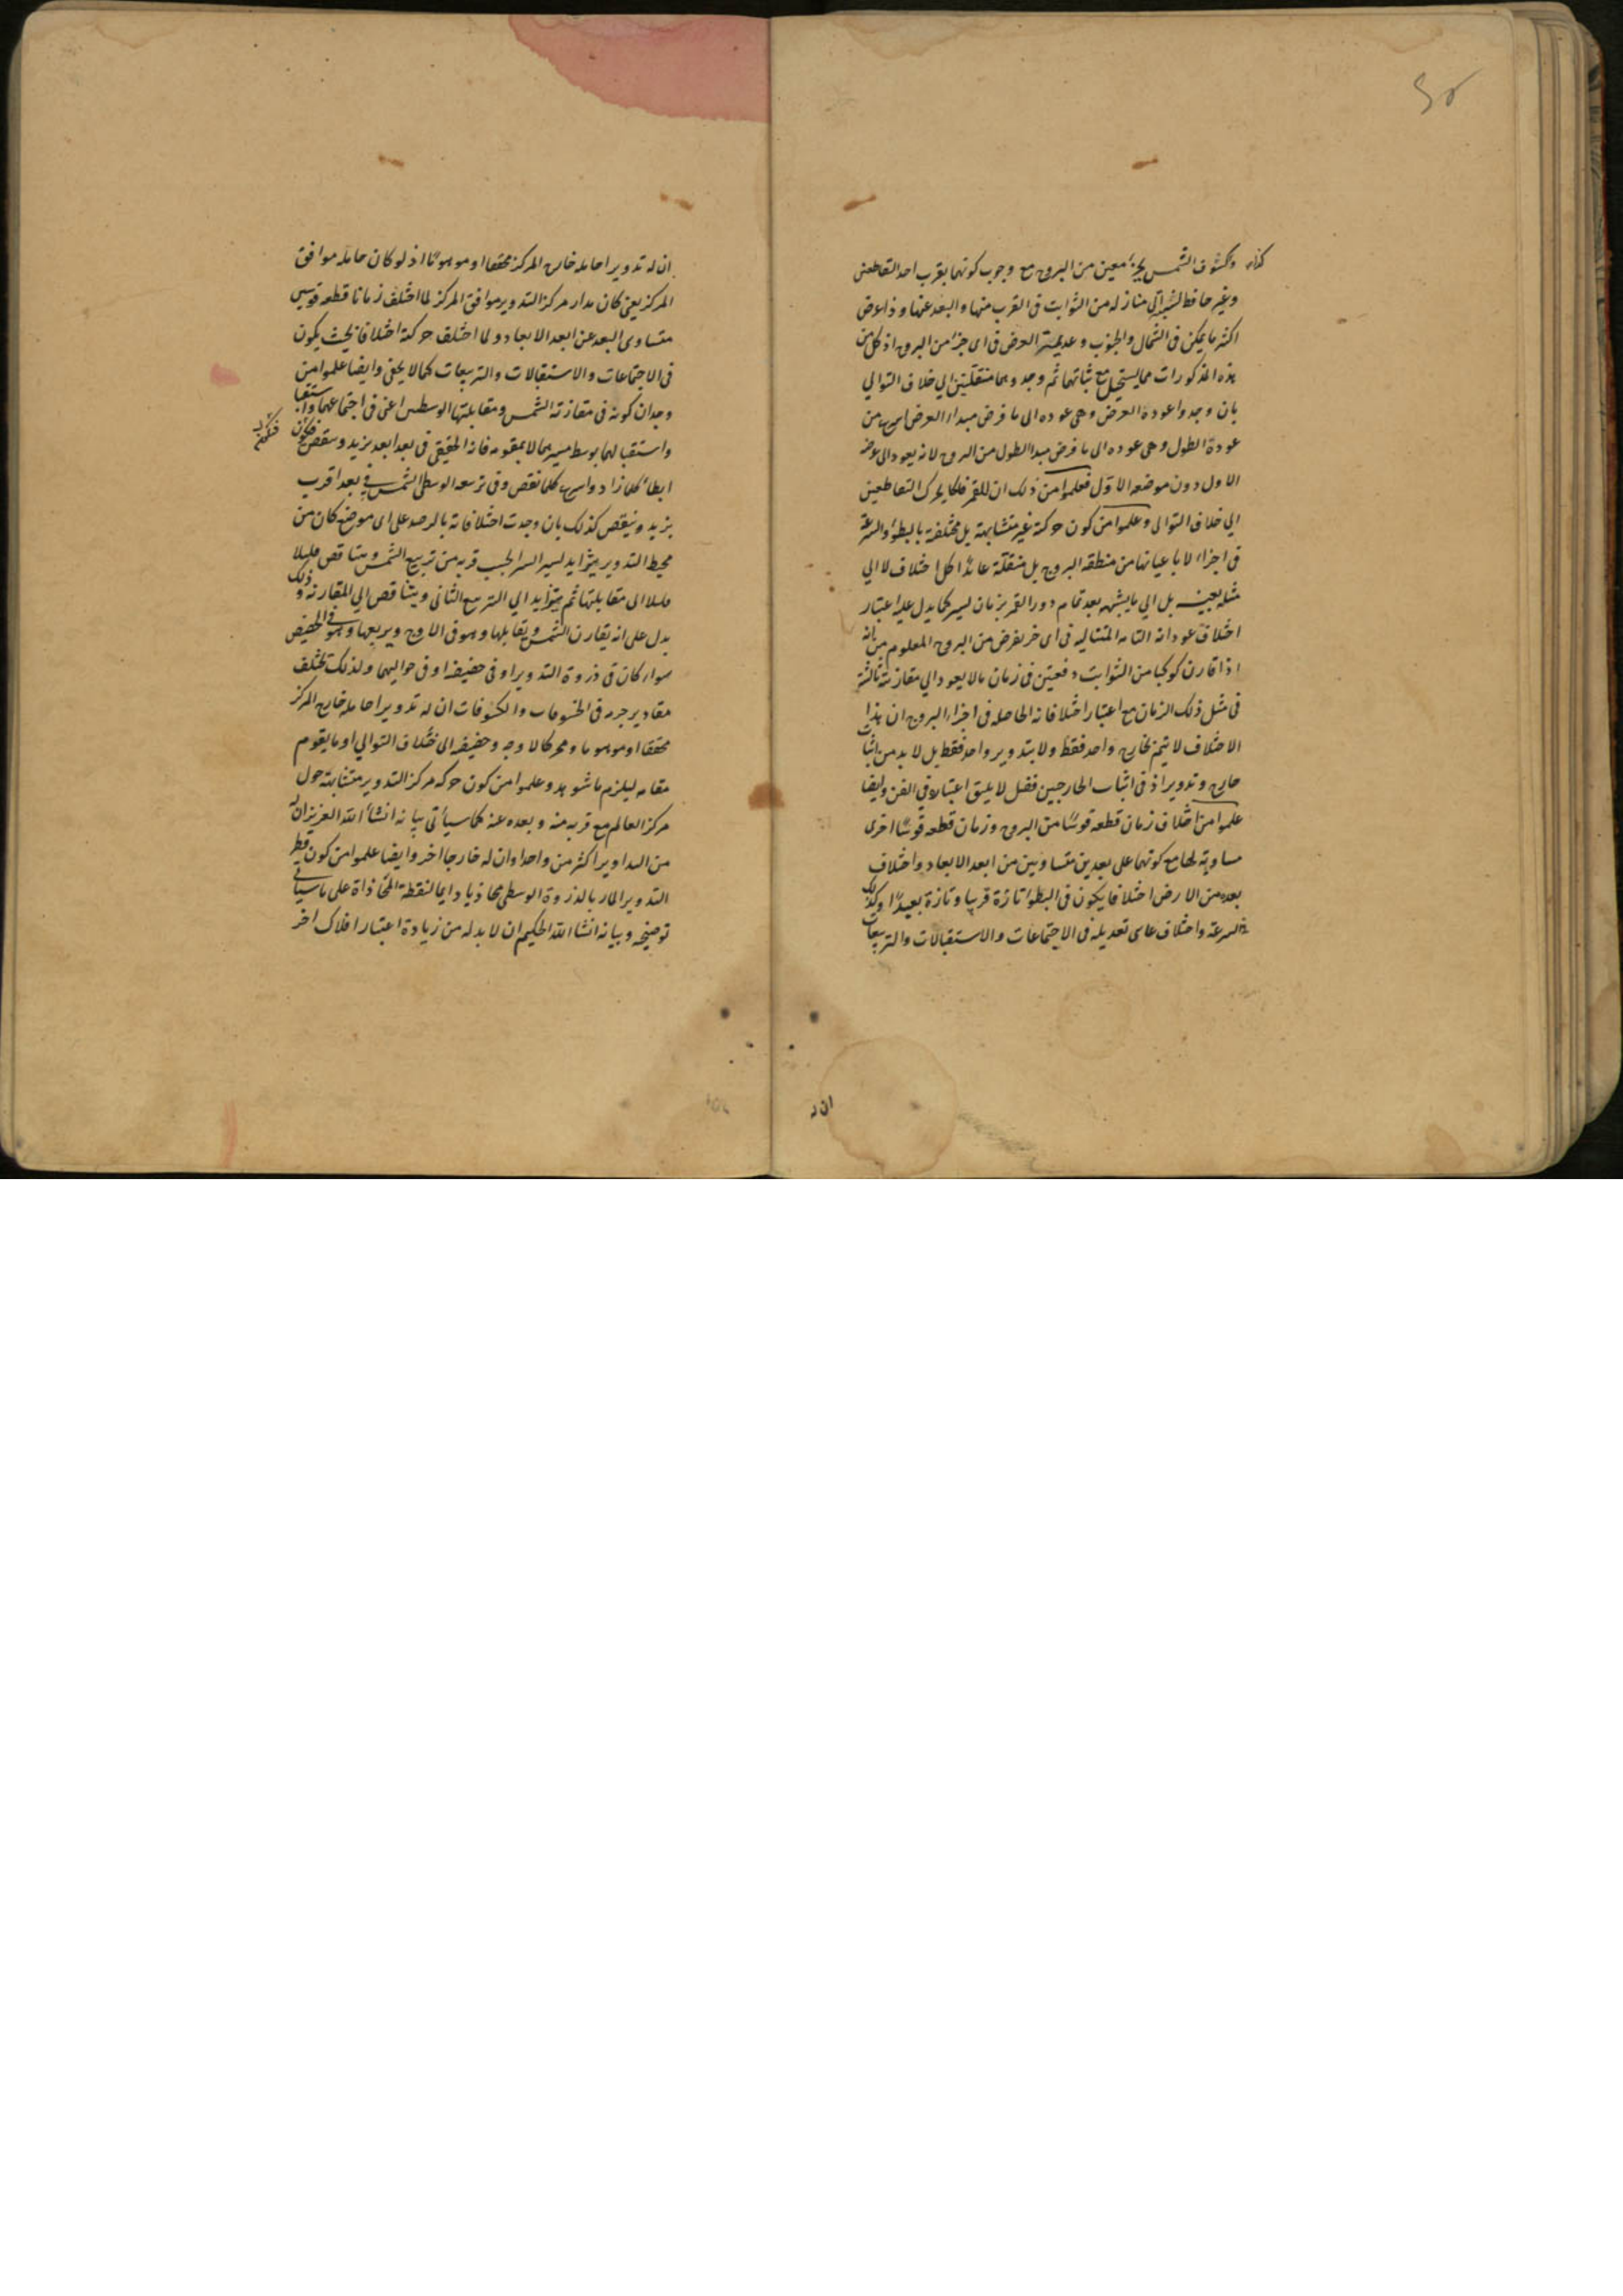 وكسوف الشمس بجزء معين من البروج مع وجوب كونهما بقرب احد التقاطعين
وغير حافظ لنسبة الى منازله من الثوابت فى القرب منها والبعد عنها وذا عرض
اكثر ما يمكن فى الشمال والجنوب وعديمة العرض فى اى جزء من البروج اذ كل من
هذه المذكورات مما يستحيل مع ثباتهما ثم وجدوهما منتقلتين الي خلاف التوالي
بان وجدوا عودة العرض وهى عوده الى ما فرض مبداء العرض اسرع من
عودة الطول وهى عوده الى ما فرض مبدا الطول من البروج لانه يعود الى عرضه
الاول دون موضعه الاول فعلموا من ذلك ان للقمر فلكا يحرك التقاطعين
الي خلاف التوالى وعلموا من كون حركة غير متشابهة بل مختلفة بالبطؤ والسرعة
فى اجزاء لا باعيانها من منطقة البروج بل منتقلة عائدا كل اختلاف لا الي
مثله بعينه بل الي ما يشبهه بعد تمام دور القمر بزمان يسير كما يدل عليه اعتبار
اختلاف عوداته التامه المتتاليه فى اى جزء يفرض من البروج المعلوم من انه
اذا قارن كوكبا من الثوابت دفعتين فى زمان ما لا يعود الي مقارنته ثالثة
فى مثل ذلك الزمان مع اعتبار اختلافاته الحاصله فى اجزاء البروج ان هذا
الاختلاف لا يتم بخارج واحد فقط ولا بتدوير واحد فقط بل لا بد من اثبات
خارج وتدوير اذ فى اثبات الخارجين فضل لا يليق اعتباره فى الفن وايضا
علموا من اختلاف زمان قطعه قوسًا من البروج وزمان قطعه قوسًا اخرى
مساوية لها مع كونهما على بعدين متساويين من ابعد الابعاد واختلاف
بعده من الارض اختلافا يكون فى البطؤ تارة قريبا وتارة بعيدًا وكذلك
فى السرعة واختلاف غاى تعديله فى الاجتماعات والاستقبالات والتربيعات
ان له
ان له تدويرا حامله خارج المركز محققا او موهومًا اذ لو كان حامله موافق
المركز يعنى كان مدار مركز التدوير موافق المركز لما اختلف زمانا قطعه قوسين
متساوى البعد عن ابعد الابعاد ولما اختلف حركته اختلافا بحيث يكون
فى الاجتماعات والاستقبالات والتربيعات كما لا يخفى وايضا علموا من
وجدان كونه فى مقارنته الشمس ومقابلتها الوسطين اعنى فى اجتماعهما
واستقبالهما بوسط مسيرهما لا بمقومه فانه الحقيقى فى بعد ابعد يزيد وينقص فيكون
ابطأ كلما زاد واسرع كلما نقص وفى تربيعه الوسطى الشمس فى بعد اقرب
يزيد وينقص كذلك بان وجدت اختلافاته بالرصد على اى موضع كان من
محيط التدوير يتزايد يسيرا يسيرا بحسب قربه من تربيع الشمس ويتناقص قليلا
قليلا الى مقابلتها ثم يتزايد الي التربيع الثانى ويتناقص الي المقارنه وذلك
يدل على انه يقارن الشمس ويقابلها وهو فى الاوج ويربعها وهو فى الحضيض
سواء كان فى ذروة التدوير او فى حضيضه او فى حواليهما ولذلك تختلف
مقادير جرمه فى الخسوفات والكسوفات ان له تدويرا حامله خارج المركز
محققا او موهوما ومحركا لاوجه وحضيضه الى خلاف التوالي او ما يقوم
مقامه ليلزم ما شوهد وعلموا من كون حركه مركز التدوير متشابهة حول
مركز العالم مع قربه منه وبعده عنه كما سيأتى بيانه انشأ الله العزيز ان له
من التداوير اكثر من واحد او ان له خارجا اخر وايضا علموا من كون قطر
التدوير المار بالذروة الوسطى محاذيا دايما لنقطة المحاذاة على ما سيأتى
توضيحه وبيانه انشا الله الحكيم ان لا بد له من زيادة اعتبار افلاك اخر